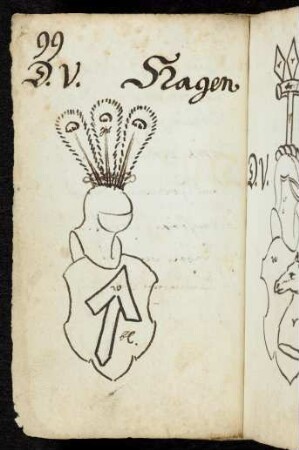 99
D. V. Hagen
D. V.